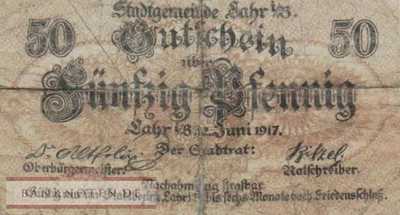 Stadtgemeinde Lahr i/B.
50 Gutschein 50
über
Fünfzig Pfennig
Lahr i/B. 12. Juni 1917.
Der Stadtrat:
Oberbürgermeister: Ratschreiber.
Nachahmung strafbar
BANKNOTEN.DE Lahr bis sechs Monate nach Friedensschluß.